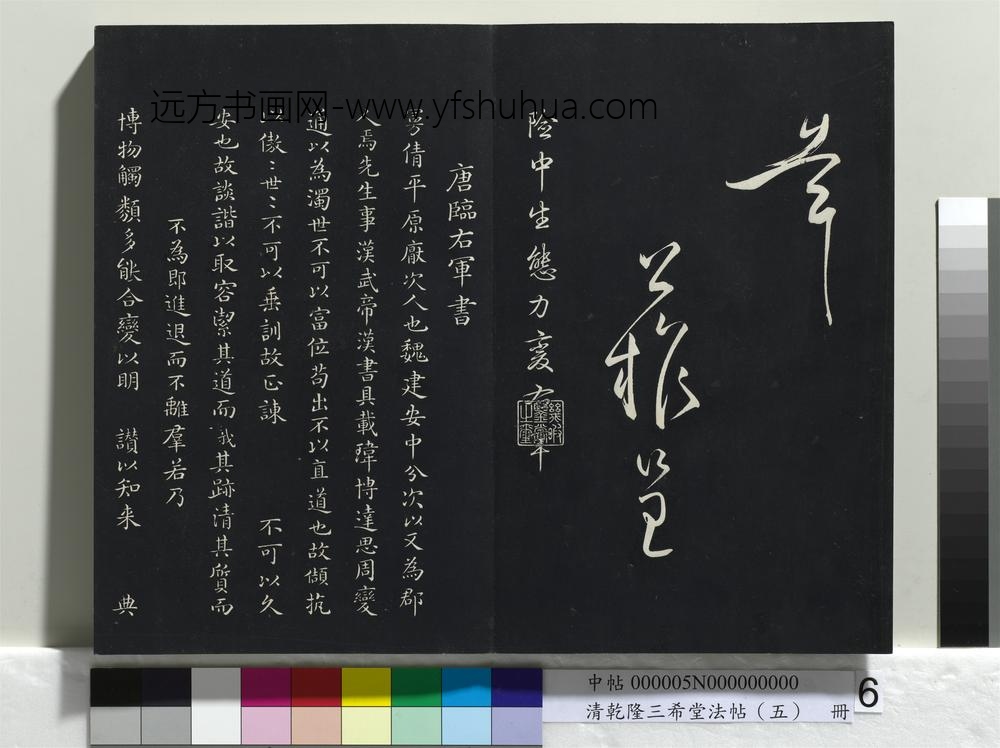 芾
险中生態力变
唐臨右軍書
曼倩平原厭次人也魏建安中分次以又為郡
人焉先生事漢武帝漢書具載瑋博達思周變
通以為濁世不可以富位苟出不以直道也故頡抗
以傲〻世〻不可以垂訓故正諫 不可以久
安也故談諧以取容潔其道而我其跡清其質而
不為即進退而不離羣若乃
博物觸類多能合變以明 讚以知来 典
远方书画网-www.yfshuhua.com
中帖 000005N000000000
清乾隆三希堂法帖（五） 冊
6